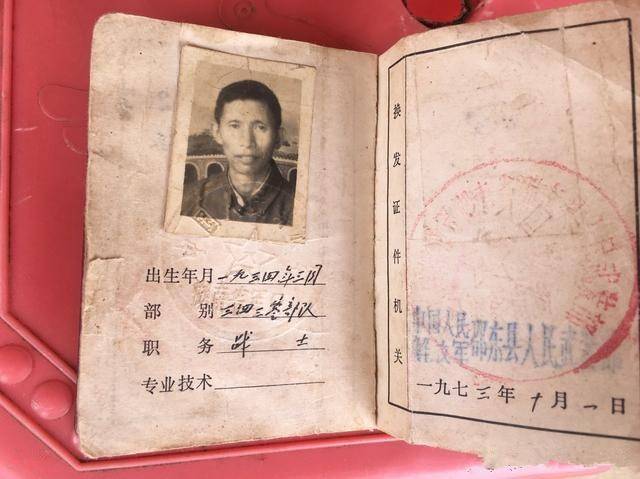 出生年月 一九三四年三月
部别 三四三零部队
职务 战士
专业技术
换发证件机关
中国人民
解放军邵东县人民武
一九七三年十月一日